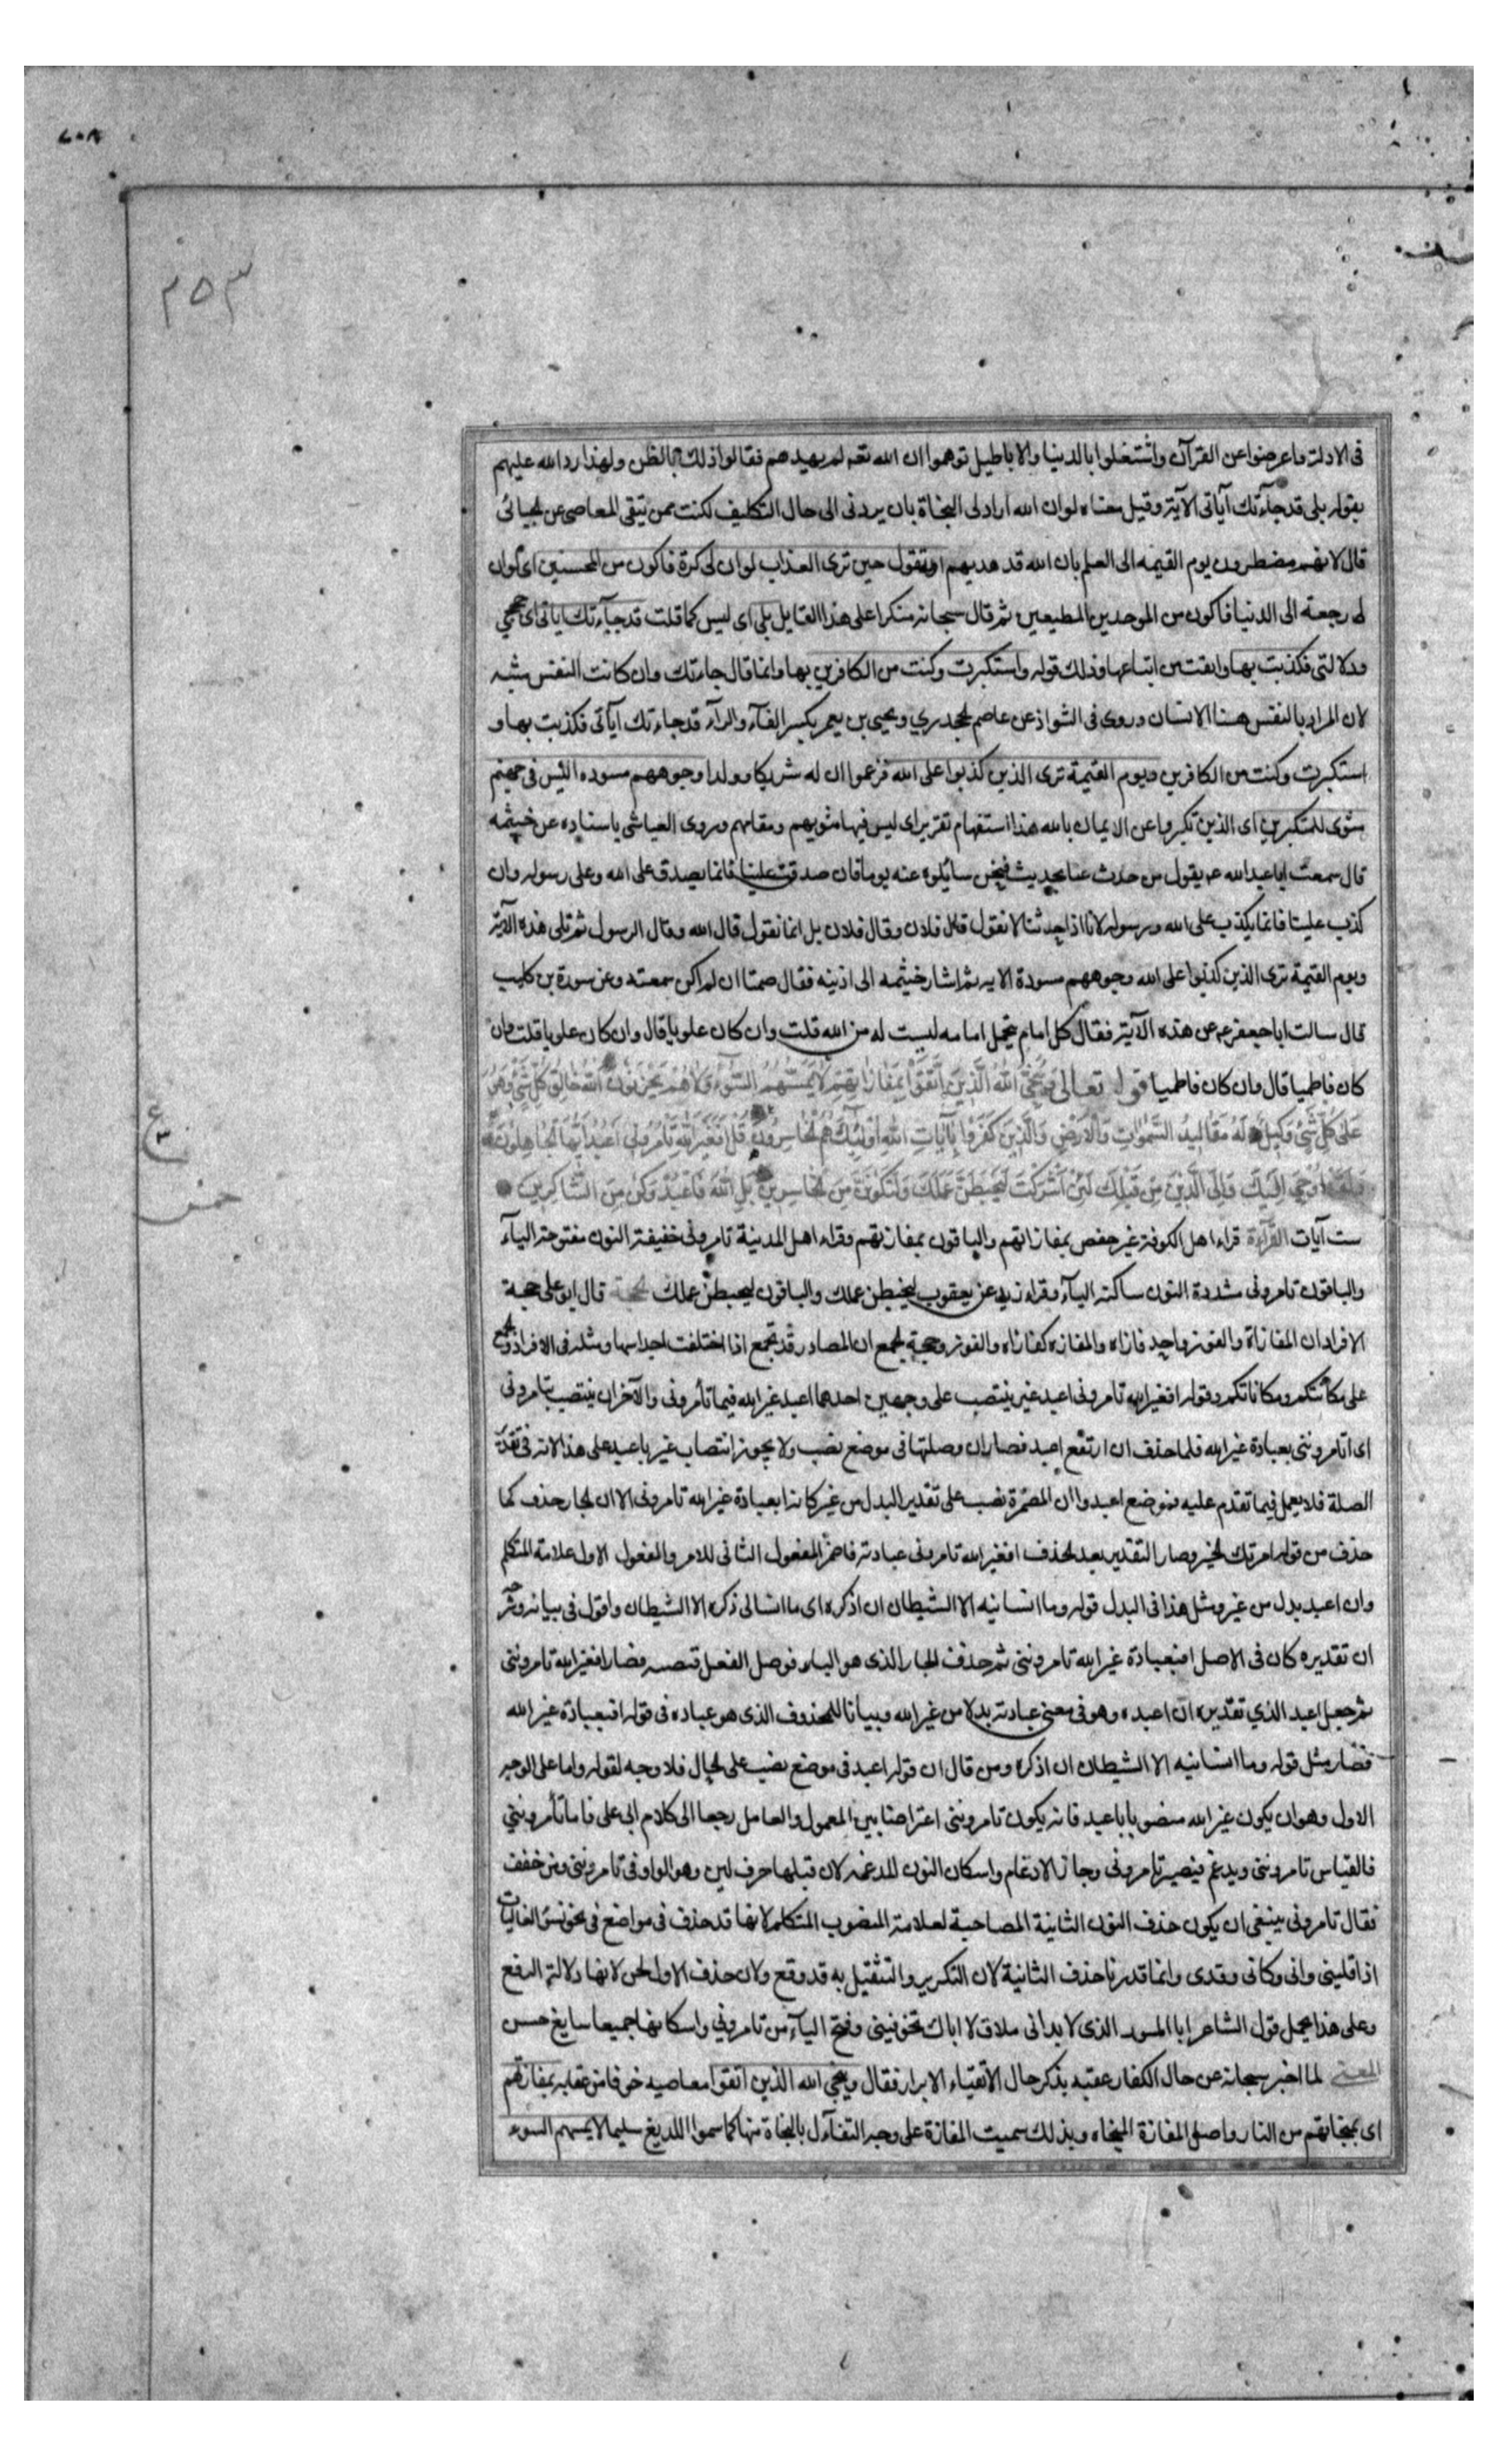 ٢٥٣
فى الادلة واعرضوا عن القرآن واشتغلوا بالدنيا والاباطيل توهموا ان الله تعه لم يهديهم فقالوا ذلك بالظن ولهذا رد الله عليهم
بقوله بلى قد جآءتك آياتى الآية وقيل معناه لو ان الله اراد لى النجاة بان يردنى الى حال التكليف لكنت ممن يتقى المعاصى عن الجبائى
قال لانهم مضطرون يوم القيمه الى العلم بان الله قد هديهم او تقول حين ترى العذاب لو ان لى كرة فاكون من المحسنين اى لو ان
لى رجعة الى الدنيا فاكون من الموحدين المطيعين ثم قال سبحانه منكرا على هذا القايل بلى اى ليس كما قلت قد جآءتك اياتى اى حججى
ودلالتى فكذبت بها وانفت من اتباعها وذلك قوله واستكبرت وكنت من الكافرين بها وانما قال جاءتك وان كانت النفس مونثه
لان المراد بالنفس هنا الانسان وروى فى الشواذ عن عاصم الجحدري ويحيى بن يعمر بكسر الفآء والرآء قد جاءتك آياتى فكذبت بها و
استكبرت وكنت من الكافرين ويوم القيمة ترى الذين كذبوا على الله فزعموا ان له شريكا وولدا وجوههم مسوده اليس فى جهنم
مثوى للمتكبرين اى الذين تكبروا عن الايمان بالله هذا استفهام تقرير اى ليس فيها مثويهم ومقامهم وروى العياشى باسناده عن خيثمه
قال سمعت ابا عبد الله عم يقول من حدث عنا بحديث فنحن سائلوه عنه يوما فان صدق علينا فانما يصدق على الله وعلى رسوله وان
كذب علينا فانما يكذب على الله ورسوله لانا اذا حدثنا لا نقول قال فلان وقال فلان بل انما نقول قال الله وقال الرسول ثم تلى هذه الآية
ويوم القيمة ترى الذين كذبوا على الله وجوههم مسودة الايه ثم اشار خيثمه الى اذنيه فقال صمتا ان لم اكن سمعته وعن سورة بن كليب
قال سالت ابا جعفر عم عن هذه الآية فقال كل امام ينتحل امامه ليست له من الله قلت وان كان علويا قال وان كان علويا قلت وان
كان فاطميا قال وان كان فاطميا قوله تعالى وَيُنَجِّى اللهُ الَّذِينَ اتَّقَوْا بِمَفَازَاتِهِمْ لَا يَمَسُّهُمُ السُّوءُ وَلَا هُمْ يَحْزَنُونَ اللهُ خَالِقُ كُلِّ شَيْءٍ وَهُوَ
عَلَى كُلِّ شَيْءٍ وَكِيلٌ لَهُ مَقَالِيدُ السَّمٰوَاتِ وَالْاَرْضِ وَالَّذِينَ كَفَرُوا بِآيَاتِ اللهِ اُولٰئِكَ هُمُ الْخَاسِرُونَ قُلْ اَفَغَيْرَ اللهِ تَامُرُونِى اَعْبُدُ اَيُّهَا الْجَاهِلُونَ
وَلَقَدْ اُوحِىَ اِلَيْكَ وَاِلَى الَّذِينَ مِنْ قَبْلِكَ لَئِنْ اَشْرَكْتَ لَيَحْبَطَنَّ عَمَلُكَ وَلَتَكُونَنَّ مِنَ الْخَاسِرِينَ بَلِ اللهَ فَاعْبُدْ وَكُنْ مِنَ الشَّاكِرِينَ
ست آيات القرآءة قراء اهل الكوفة غير حفص بمفازاتهم والباقون بمفازتهم وقراء اهل المدينة تامرونى خفيفة النون مفتوحة اليآء
والباقون تامرونى مشددة النون ساكنة اليآء وقراء زيد عن يعقوب لنحبطن عملك والباقون ليحبطن عملك الحجة قال ابو على حجة
الافراد ان المفازة والفوز واحد فافراد المفازه كافراد الفوز وحجة الجمع ان المصادر قد تجمع اذا اختلفت اجناسها ومثله فى الافراد والجمع
على مكانتكم ومكاناتكم وقوله افغير الله تامرونى اعبد غير ينتصب على وجهين احدهما اعبد غير الله فيما تأمرونى والآخر ان ينتصب بتامرونى
اى اتامروننى بعبادة غير الله فلما حذف ان ارتفع اعبد فصار ان وصلتها فى موضع نصب ولا يجوز انتصاب غير باعبد على هذا لانه فى تقدير
الصلة فلا يعمل فيما تقدم عليه فموضع اعبد وان المضمرة نصب على تقدير البدل من غير كانه ابعبادة غير الله تامرونى الا ان الجار حذف كما
حذف من قوله امرتك الخير وصار التقدير بعد الحذف افغير الله تامرونى عبادته فاضمر المفعول الثانى للامر والمفعول الاول علامة المتكلم
وان اعبد بدل من غير ومثل هذا فى البدل قوله وما انسانيه الا الشيطان ان اذكره اى ما انسانى ذكره الا الشيطان واقول فى بيانه وشرحه
ان تقديره كان فى الاصل افبعبادة غير الله تامروننى ثم حذف الجار الذى هو الباء فوصل الفعل فنصبه فصار افغير الله تامروننى
ثم جعل اعبد الذي تقديره ان اعبده وهو فى معنى عبادته بدلا من غير الله وبيانا للمحذوف الذى هو عباده فى قوله افبعبادة غير الله
فصار مثل قوله وما انسانيه الا الشيطان ان اذكره ومن قال ان قوله اعبد فى موضع نصب على الحال فلا وجه لقوله واما على الوجه
الاول وهو ان يكون غير الله منصوبا باعبد فانه يكون تامروننى اعتراضا بين المعمول والعامل رجعا الى كلام ابى على فاما تأمروننى
فالقياس تامروننى ويدغم فيصير تامرونى وجاز الادغام واسكان النون المدغمه لان قبلها حرف لين وهو الواو فى تامروننى ومن خفف
فقال تامرونى ينبغى ان يكون حذف النون الثانية المصاحبة لعلامة المنصوب المتكلم لانها قد حذف فى مواضع فى نحو يسوء الفاليات
اذا قلينى وانى وكانى وقدى وانما قدرنا حذف الثانية لان التكرير والتثقيل به قد وقع ولان حذف الاول لحن لانها دلالة الرفع
وعلى هذا يحمل قول الشاعر ابا الموت الذى لا بد انى ملاق لا اباك تخوفينى وفتح اليآء من تامرونى واسكانها جميعا سايغ حسن
المعنى لما اخبر سبحانه عن حال الكفار عقبه بذكر حال الاتقياء الابرار فقال وينجى الله الذين اتقوا معاصيه خوفا من عقابه بمفازتهم
اى بمنجاتهم من النار واصل المفازة المنجاه وبذلك سميت المفازة على وجه التفآءل بالنجاة منها كما سموا اللديغ سليما لا يمسهم السوء